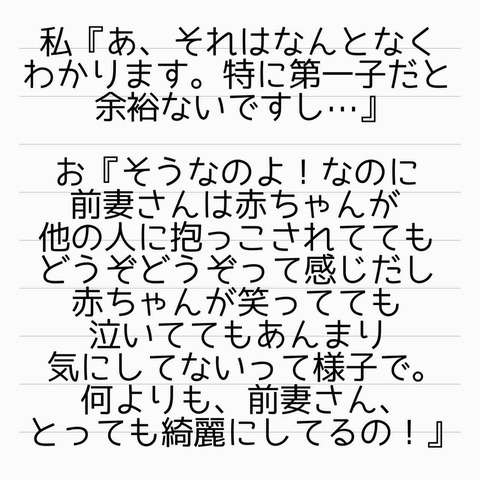 私『あ、それはなんとなく
わかります。特に第一子だと
余裕ないですし…』
お『そうなのよ！なのに
前妻さんは赤ちゃんが
他の人に抱っこされてても
どうぞどうぞって感じだし
赤ちゃんが笑ってても
泣いててもあんまり
気にしてないって様子で。
何よりも、前妻さん、
とっても綺麗にしてるの！』